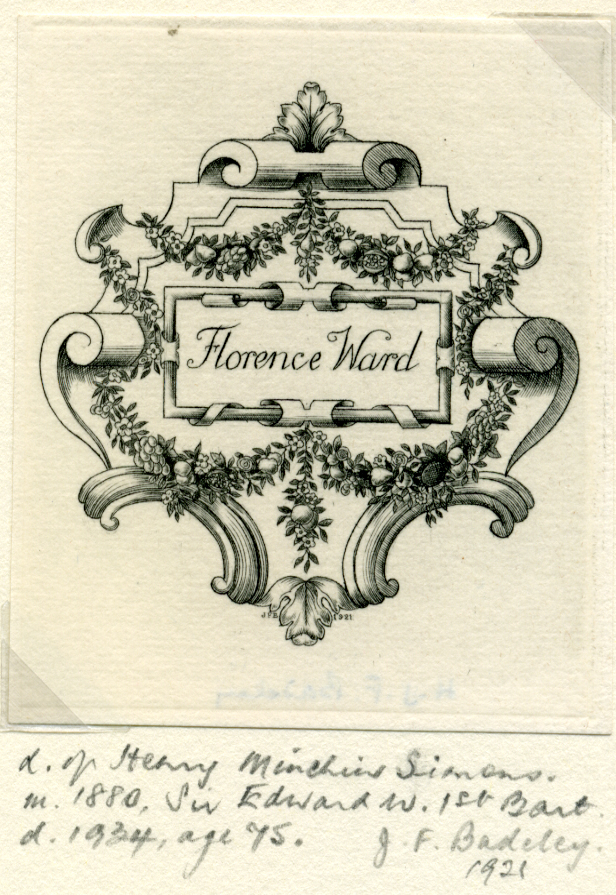 Florence Ward
JFB 1921
d. of Henry Minchin Simons.
m. 1880, Sir Edward W. 1st Bart.
d. 1934, age 75. J. F. Badeley.
1921